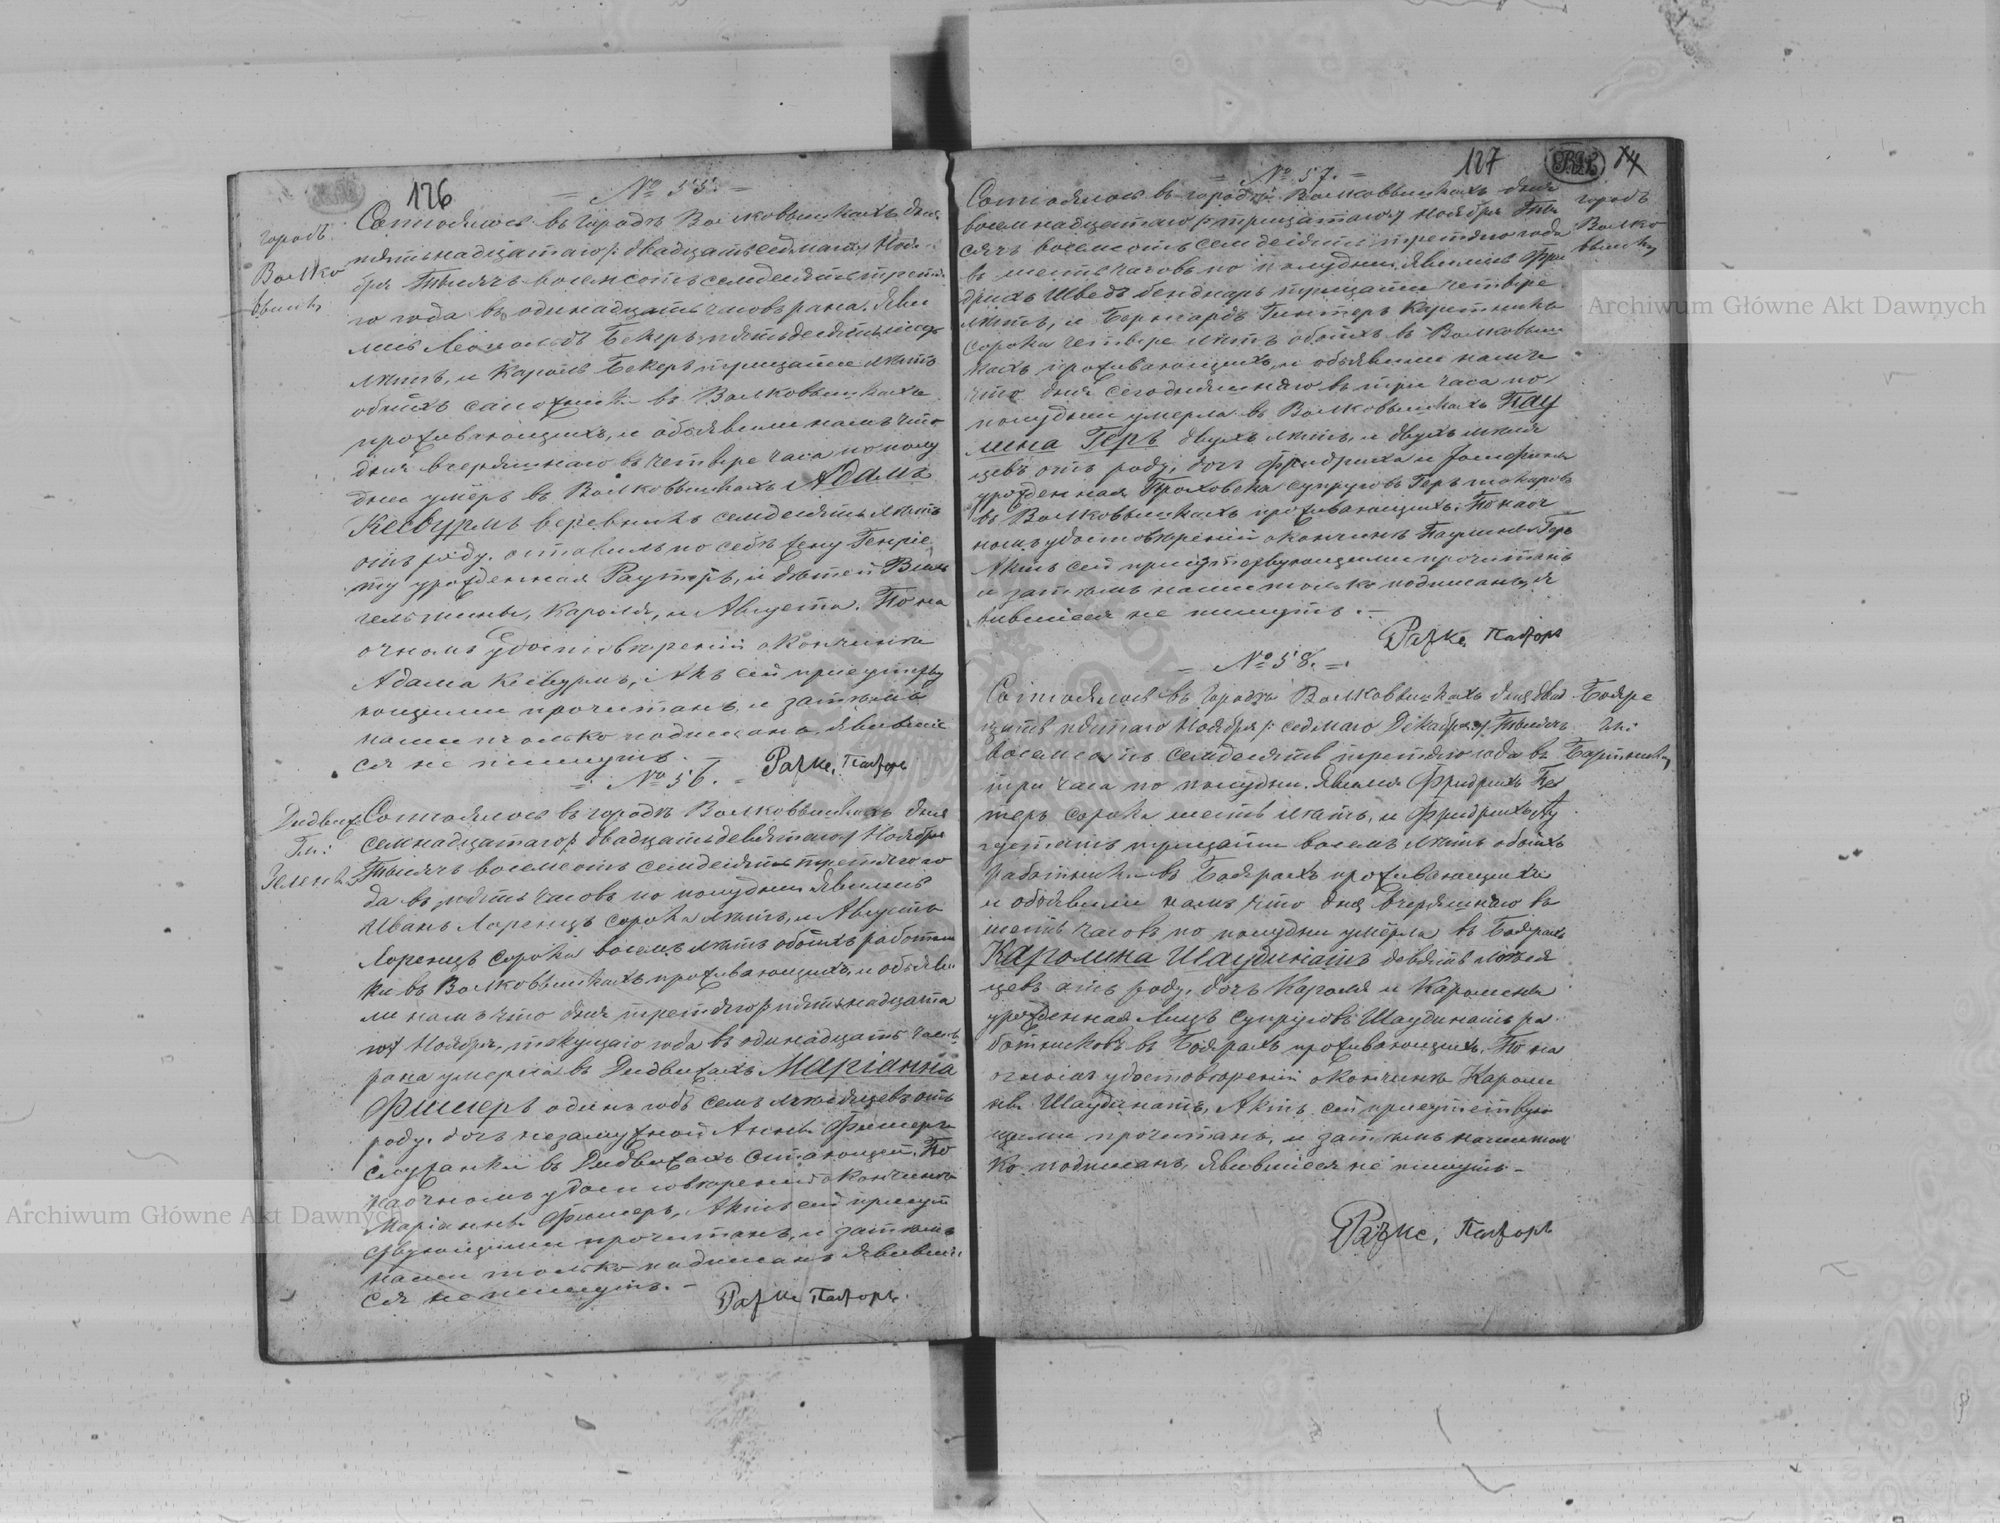 126
№ 55.
городъ
Волко
вышки
Состоялось въ городѣ Волковышкахъ дня
пятьнадцатаго /: двадцать седмаго Нояб
бря Тысяча восемсотъ семдесятъ третья
го года въ одинадцать часовъ рана. Яви
лись Леопольдъ Бекеръ пятьдесятъ
лѣтъ, и Кароль Бекеръ тридцати лѣтъ
обыихъ сапожники въ Волковышкахъ
проживающихъ, и объявили намъ что
дня вчеряшнаго въ четвере часа по полу
дни умёръ въ Волковышкахъ Адамъ
Кесвурмъ веревникъ семдесятъ лѣтъ
отъ роду, оставилъ по себѣ жену Генріе
ту урожденная Раутеръ, и дѣтей Виль
гельмины, Кароля, и Августа. По на
очномъ удостовѣреніи о кончинѣ
Адама Кесвурмъ, Актъ сей присутству
ющими прочитанъ, и затѣмъ
нами только подписанъ, явивши
ся не пишутъ.
Ражке, Пасторъ
№ 56.
Дыдвиж
Гм:
Зеленка
Состоялось въ городѣ Волковышкахъ дня
семнадцатаго /: двадцать девятаго / Ноября
Тысяча восемсотъ семдесятъ третьяго го
да въ пять часовъ по полудни. Явились
Иванъ Лоренцъ сорока лѣтъ, и Августъ
Лоренцъ сорока восемъ лѣтъ обоихъ работни
ки въ Волковышкахъ проживающихъ, и объяви
ли намъ что дня третьяго / пятьнадцата
го / Ноября, текущаго года въ одинадцать часовъ
рана умерла въ Дыдвижахъ Маріанна
Фишеръ одинъ годъ семъ мѣсяцевъ отъ
роду, дочь незамужной Анны Фишеръ
служанки въ Дыдвижахъ
наочномъ удостовѣреніи о кончинѣ
Маріанны Фишеръ, Актъ сей присут
ствующими прочитанъ, и затѣмъ
нами только подписанъ явивши
ся не пишутъ.
Ражке Пасторъ.
127
№ 57.
городъ
Волко
вышки
Состоялось въ городѣ Волковышкахъ дня
восемнадцатаго /: тридцатаго / Ноября Ты
сяча восемсотъ семдесятъ третьяго года
въ шесть часовъ по полудни. Явились Фри
дрихъ Шведъ беднаръ тридцати четвере
лѣтъ, и Бернардъ Гинтеръ
сорока четвере лѣтъ обоихъ въ Волковыш
кахъ проживающихъ, и объявили намъ
что дня сегодняшнаго въ три часа по
полудни умерла въ Волковышкахъ Пау
лина Геръ двухъ лѣтъ, и двухъ мѣся
цевъ отъ роду, дочь Фридриха и Жозефины
урожденная супруговъ Геръ токаровъ
въ Волковышкахъ проживающихъ. По наоч
номъ удостовѣреніи о кончинѣ Паулины Геръ
Актъ сей присутствующими прочитанъ
и затѣмъ нами только подписанъ, я
вившіеся не пишутъ.
Ражке, Пасторъ
№ 58.
Бояре
Гм:
Бартники
Состоялось въ городѣ Волковышкахъ дня двад
цать пятаго Ноября /: седмаго Декабря / Тысяча
восемсотъ семдесятъ третьяго года въ
три часа по полудни. Явился Фридрихъ Пе
теръ сорока шесть лѣтъ, и Фридрихъ
тридцати восемъ лѣтъ обоихъ
работники въ Боярахъ проживающихъ
и объявили намъ что дня вчеряшнаго въ
шесть часовъ по полудни умёрла въ Боярахъ
Каролина Шаудинатъ девять мѣся
цевъ отъ роду, дочь Кароля и Каролины
урожденная Лицъ супруговъ Шаудинатъ ра
ботниковъ въ Боярахъ проживающихъ. По на
очномъ удостовѣреніи о кончинѣ Кароли
ны Шаудинатъ, Актъ сей присутствую
щими прочитанъ, и затѣмъ нами толь
ко подписанъ, явившіеся не пишутъ.
Ражке, Пасторъ
Archiwum Główne Akt Dawnych
Archiwum Główne Akt Dawnych